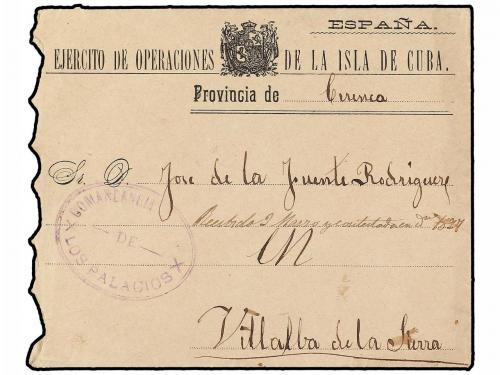 ESPAÑA.
EJERCITO DE OPERACIONES DE LA ISLA DE CUBA.
Provincia de Cuenca
Sr. D. Jose de la Fuente Rodriguez
Recibida 2 Marzo y contestada en
en
COMANDANCIA
DE
LOS PALACIOS
Villalba de la Sierra